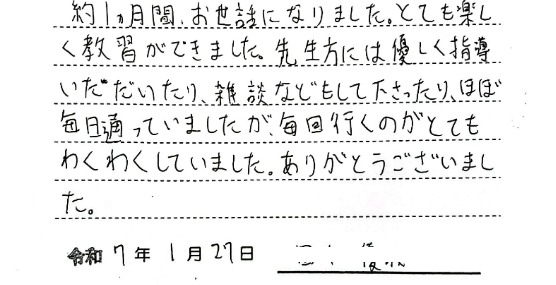 約1ヵ月間、お世話になりました。とても楽し
く教習ができました。先生方には優しく指導
いただいたり、雑談などもして下さったり、ほぼ
毎日通っていましたが、毎回行くのがとても
わくわくしていました。ありがとうございまし
た。
令和 7年 1月 27日